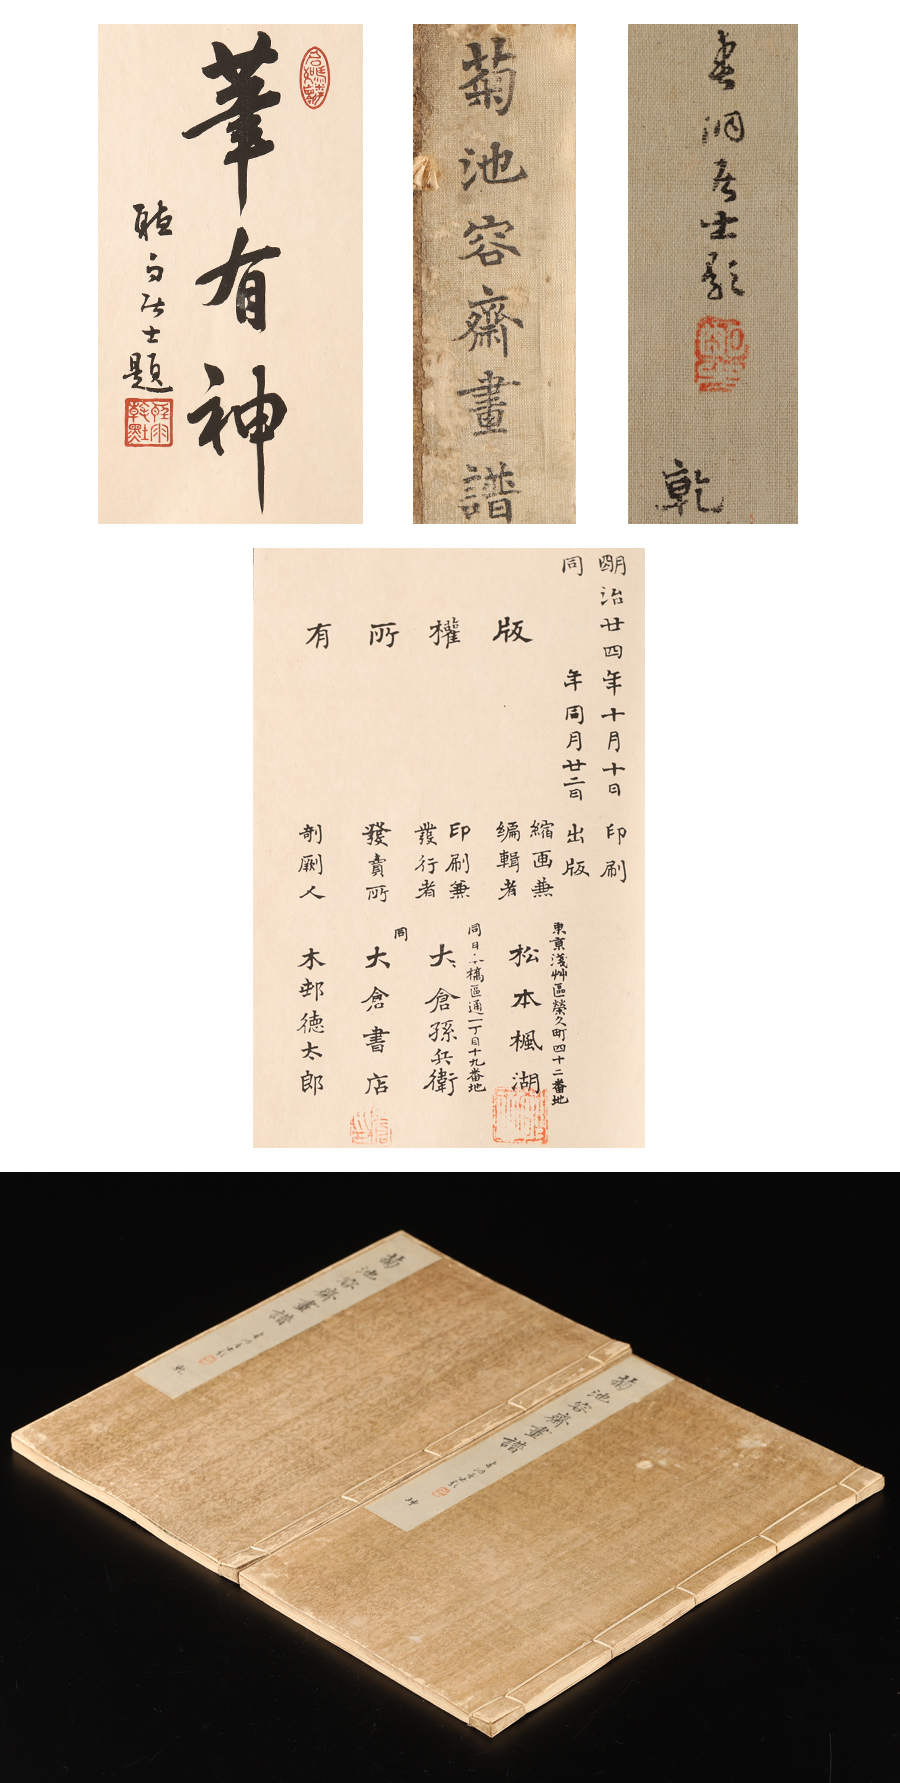 筆有神
聴雨居士題
菊池容齋畫譜
居士題
乾
明治廿四年十月十日印刷
同年同月廿二日出版
版權所有
東京淺艸區榮久町四十二番地
縮画兼
編輯者 松本楓湖
同日本橋區通一丁目十九番地
印刷兼
發行者 大倉孫兵衛
同
發賣所 大倉書店
剞劂人 木邨徳太郎
菊池容齋畫譜
乾
菊池容齋畫譜
坤